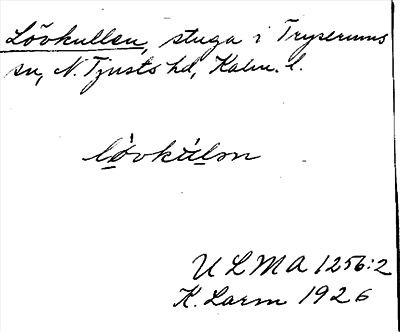 Lövkullen, stuga i Tryserums
sn, N. Tjusts hd, Kalm. l.
lövkùlən
ULMA 1256:2
K. Larm 1926